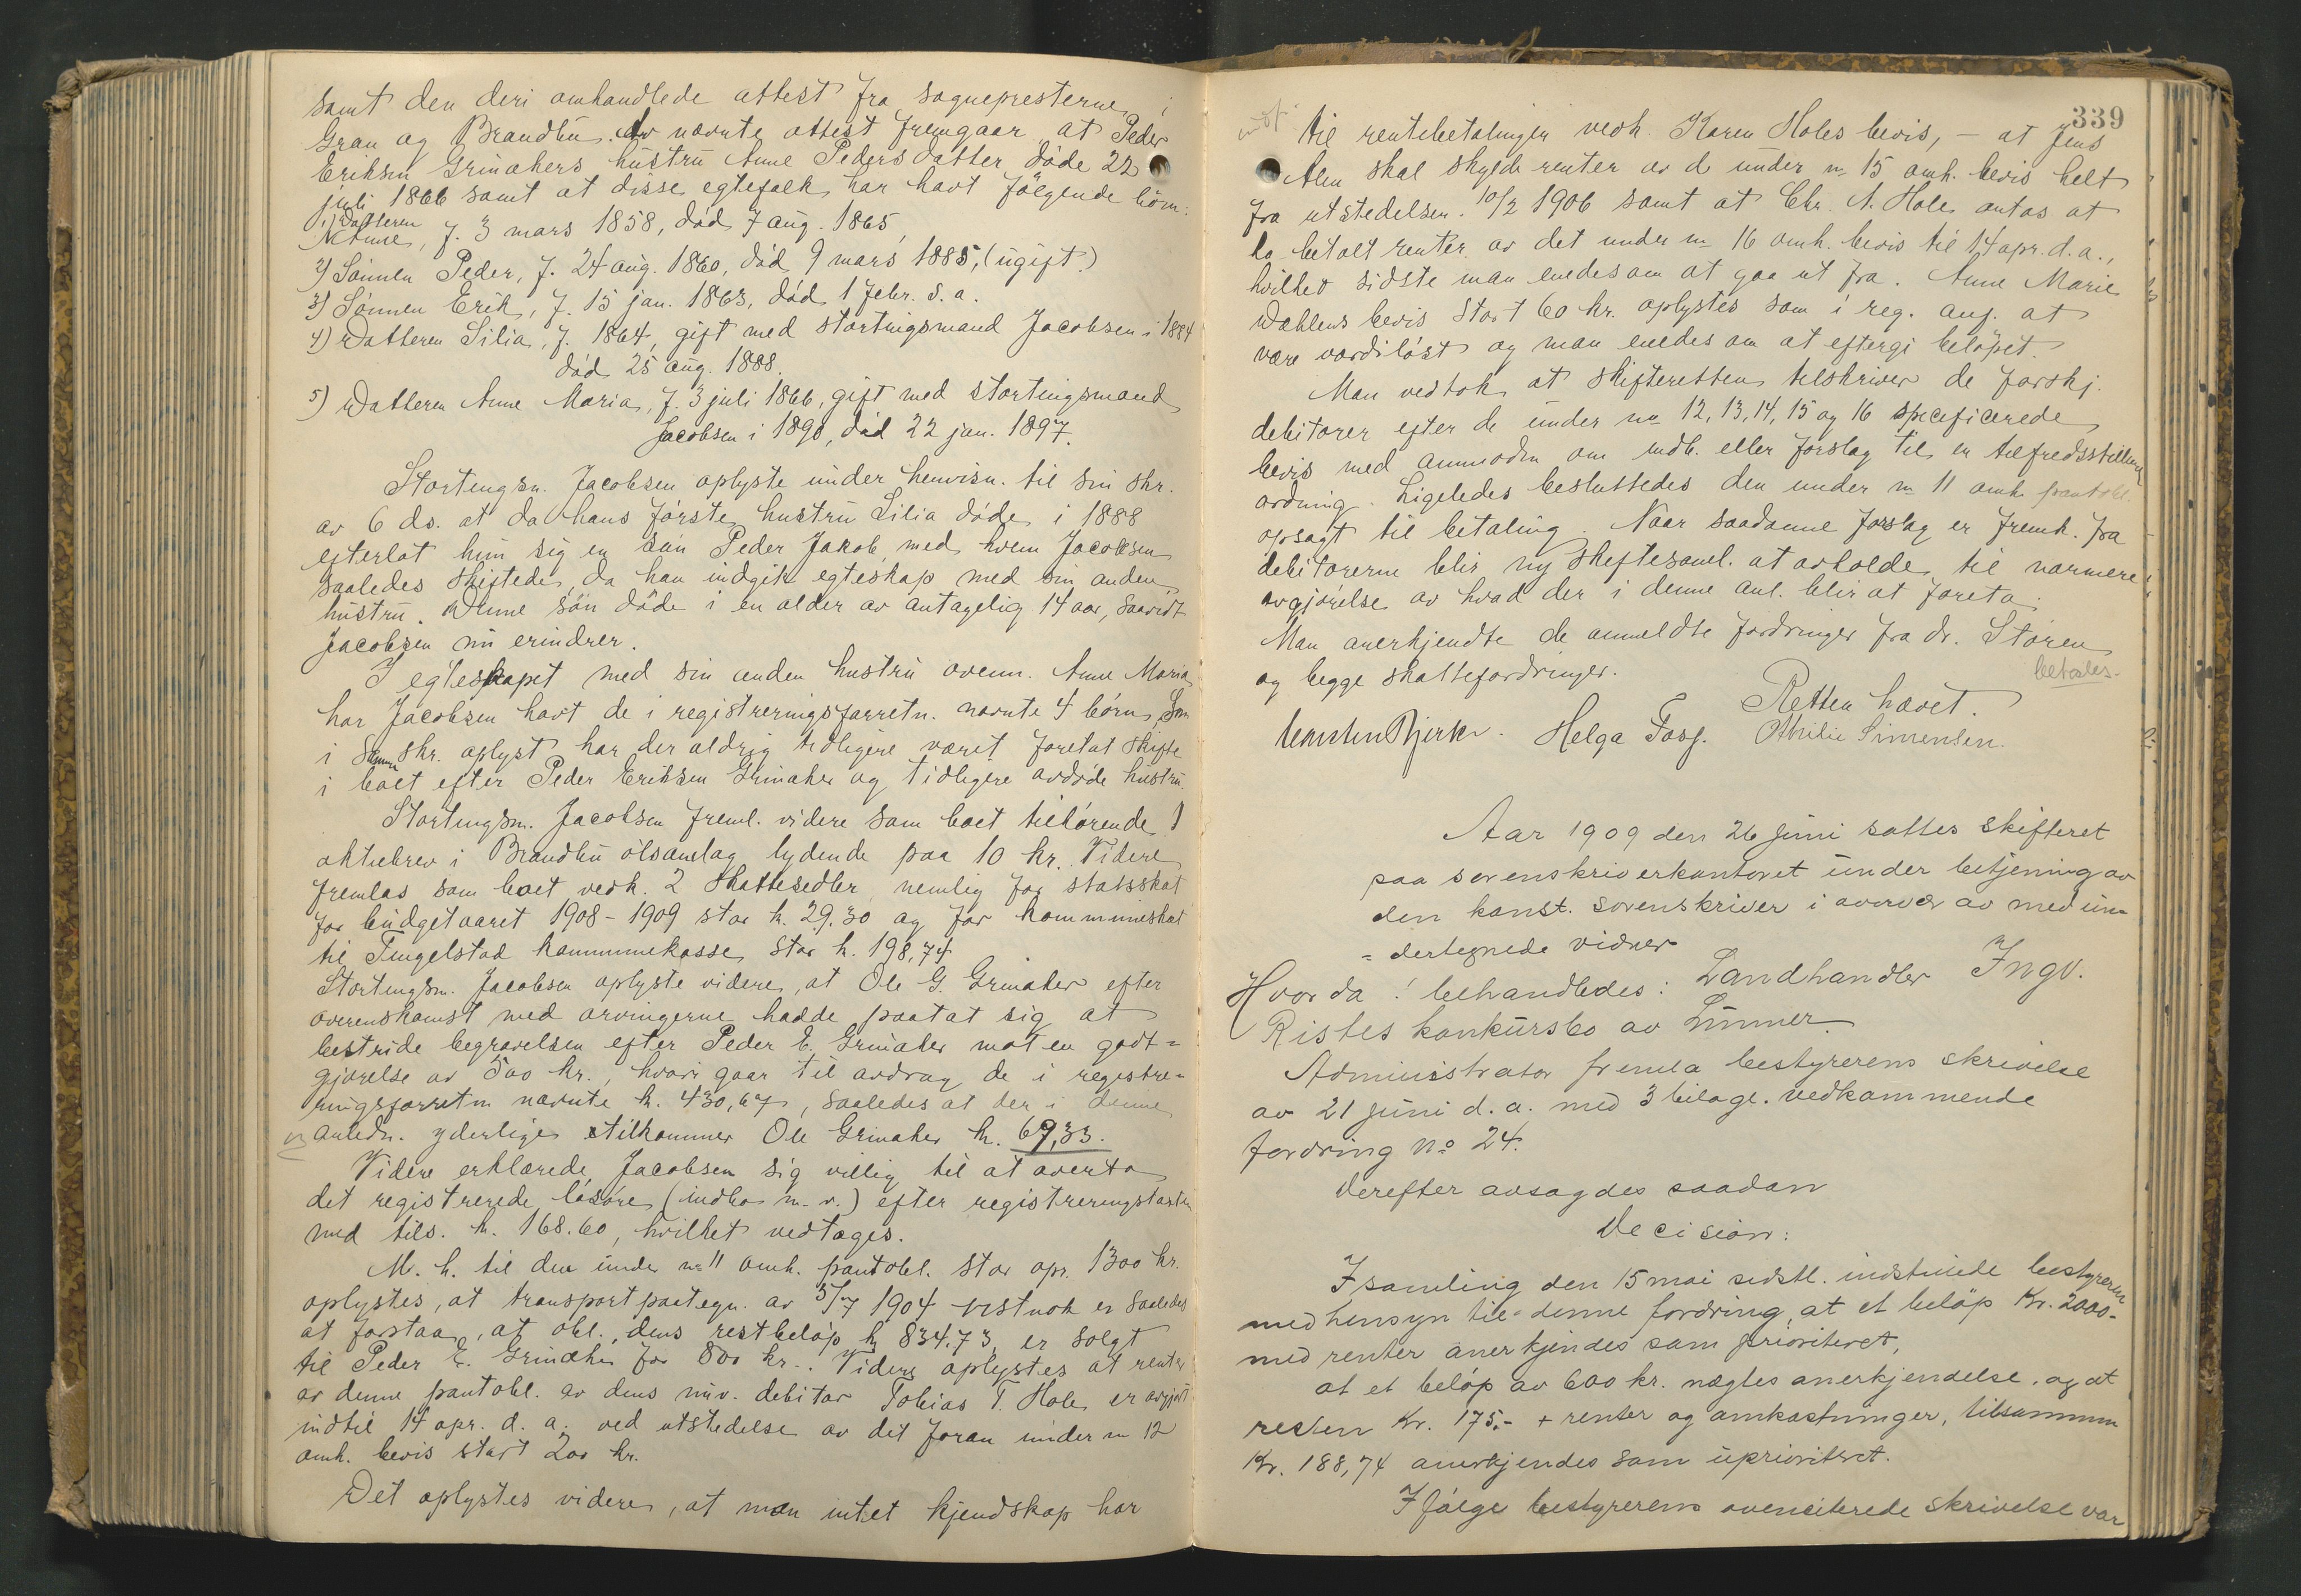 samt den deri omhandlede attest fra sognepresterne i
Gran og Brandbu. Av nævnte attest fremgaar at Peder
Eriksen Grinakers hustru Anne Pedersdatter döde 22
juli 1866 samt at disse egtefolk har havt følgende börn:
1) Datteren Anne, f. 3 mars 1858, död 7 aug. 1865,
2) Sönnen Peder, f. 24 aug. 1860, död 9 mars 1885, (ugift.)
3) Sönnen Erik, f. 15 jan. 1863, död 1 febr. s. a.
4) Datteren Silia, f. 1864, gift med stortingsmand Jacobsen i 1884
död 25 aug. 1888.
5) Datteren Anne Maria, f. 3 juli 1866, gift med stortingsmand
Jacobsen i 1890, död 22 jan. 1897.
Stortingsm. Jacobsen oplyste under henvisn. til sin skr.
av 6 ds. at da hans første hustru Silia döde i 1888
efterlot hun sig en sön Peder Jakob, med hvem Jacobsen
saaledes skiftede, da han indgik egteskap med sin anden
hustru. Denne sön döde i en alder av antagelig 14 aar, saavidt
Jacobsen nu erindrer.
I egteskapet med sin anden hustru ovenn. Anne Maria
har Jacobsen havt de i registreringsforretn. nævnte 4 börn, Som
i Samme skr. oplyst har der aldrig tidligere været foretat skifte
i boet efter Peder Eriksen Grinaker og tidligere avdöde hustru.
Stortingsm. Jacobsen freml. videre som boet tilhörende 1
aktiebrev i Brandbu ölsamlag lydende paa 10 kr. Videre
fremlas som boet vedk. 2 skattesedler, nemlig for statsskat
for budgetaaret 1908-1909 stor k. 29.30 og for kommuneskat
til Tingelstad kommunekasse, stor k. 198,74.
Stortingsm. Jacobsen oplyste videre, at Ole G. Grinaker efter
overenskomst med arvingerne hadde paatat sig at
bestride begravelsen efter Peder E. Grinaker mot en godt-
gjørelse av 500 kr., hvori gaar til avdrag de i registre-
ringsforretn nævnte k. 430,67, saaledes at der i denne
anledn. yderlige tilkommer Ole Grinaker k. 69,33.
Videre erklærede Jacobsen sig villig til at overta
det registrerede lösöre (indbo m. v.) efter registreringstaxten
med tils. k. 168.60, hvilket vedtages.
M. h. til den under no 11 omh. pantobl. stor opr. 1300 kr.
oplystes, at transportpaategn. av 5/7 1904 vistnok er saaledes
at forstaa, at obl., dens restbelöp k 834.73, er solgt
til Peder E. Grinaker for 800 kr.. Videre oplystes at renter
av denne pantobl. av dens nuv. debitor Tobias T. Hole, er avgjort
indtil 14 apr. d. a. ved utstedelse av det foran under no 12
omh. bevis stort 200 kr.
Det oplystes videre, at man intet kjendskap har
339
til rentebetalingen vedk. Karen Holes bevis, — at Jens
Alm skal skylde renter av de under no 15 omh. bevis helt
fra utstedelsen. 10/2 1906 samt at Chr. A. Hole antas at
ha betalt renter av det under no 16 omh. bevis til 14 apr. d. a.,
hvilket sidste man enedes om at gaa ut fra. Anne Marie
Dæhlens bevis stort 60 kr. oplystes som i reg. anf. at
være værdilöst og man enedes om at eftergi belöpet.
Man vedtok at skifteretten tilskriver de forskj.
debitorer efter de under no 12, 13, 14, 15 og 16 specificerede
bevis med anmodn om indb. eller forslag til en tilfredsstillende
ordning. Ligeledes besluttedes den under no 11 omh. pantobl.
opsagt til betaling. Naar saadanne forslag er fremk. fra
debitorerne blir ny skiftesaml. at avholde til nærmere
avgjörelse av hvad der i denne anl. blir at foreta.
Man anerkjendte de anmeldte fordringer fra dr. Stören
og begge skattefordringer.
betales.
Retten hævet.
Carsten Bjerke. Helga Foss. Othilie Simensen.
Aar 1909 den 26 juni sattes skifteret
paa sorenskriverkontoret under betjening av
den konst. sorenskriver i overvær av med un-
=dertegnede vidner
Hvor da! behandledes: Landhandler Ingv.
Ristes konkursbo av Lunner.
Administrator fremla bestyrerens skrivelse
av 21 juni d. a. med 3 bilage. vedkommende
fordring No 24.
Derefter avsagdes saadan
Decision:
I samling den 15 mai sidstl. indstillede bestyreren
med hensyn til denne fordring, at et belöp Kr. 2000.-
med renter anerkjendes som prioriteret,
at et belöp av 600 kr. nægtes anerkjendelse, og at
resten Kr. 175.- + renter og omkostninger, tilsammen
Kr. 188,74 anerkjendes som uprioritert.
Ifölge bestyrerens ovenciterede skrivelse var